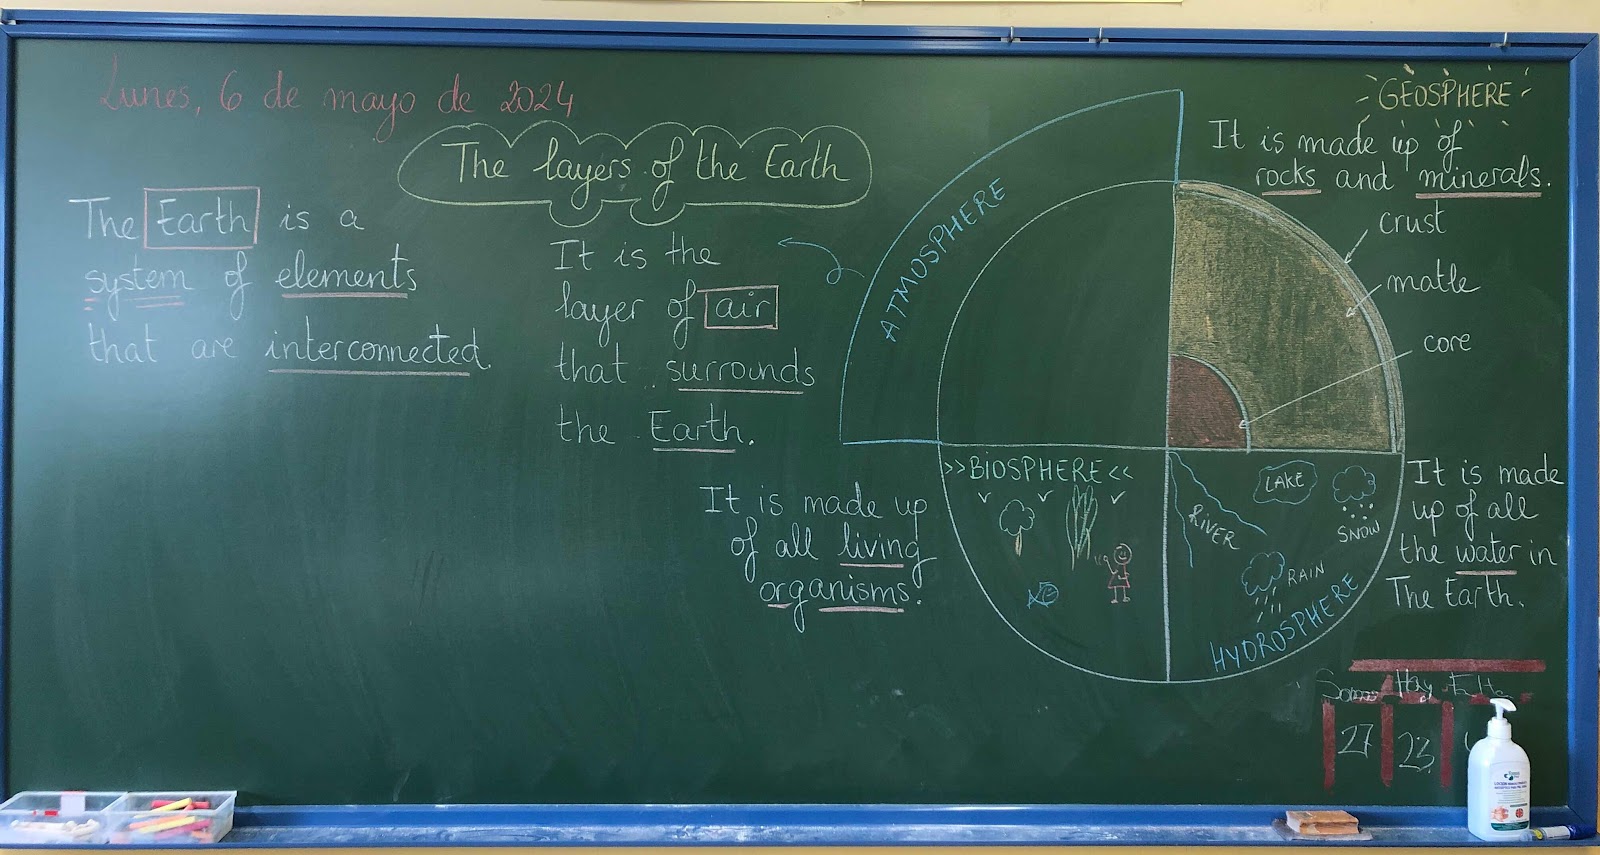 Lunes, 6 de mayo de 2024
The layers of the Earth
The Earth is a
system of elements
that are interconnected.
It is the
layer of air
that surrounds
the Earth.
ATMOSPHERE
GEOSPHERE
It is made up of
rocks and minerals.
crust
matle
core
>>BIOSPHERE<<
It is made up
of all living
organisms.
LAKE
RIVER
SNOW
RAIN
HYDROSPHERE
It is made
up of all
the water in
The Earth.
Somos Hay
27 23